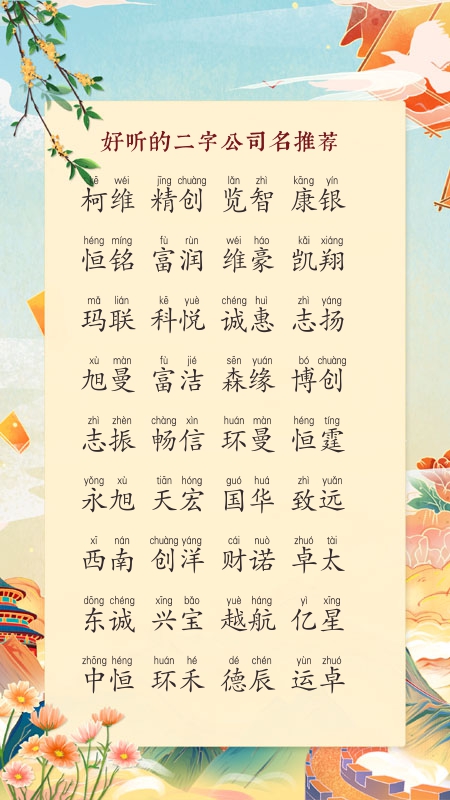 好听的二字公司名推荐
kē wéi jīng chuàng lǎn zhì kāng yín
柯维 精创 览智 康银
héng míng fù rùn wéi háo kǎi xiáng
恒铭 富润 维豪 凯翔
mǎ lián kē yuè chéng huì zhì yáng
玛联 科悦 诚惠 志扬
xù màn fù jié sēn yuán bó chuàng
旭曼 富洁 森缘 博创
zhì zhèn chàng xìn huán màn héng tíng
志振 畅信 环曼 恒霆
yǒng xù tiān hóng guó huá zhì yuǎn
永旭 天宏 国华 致远
xī nán chuàng yáng cái nuò zhuó tài
西南 创洋 财诺 卓太
dōng chéng xīng bǎo yuè háng yì xīng
东诚 兴宝 越航 亿星
zhōng héng huán hé dé chén yùn zhuó
中恒 环禾 德辰 运卓